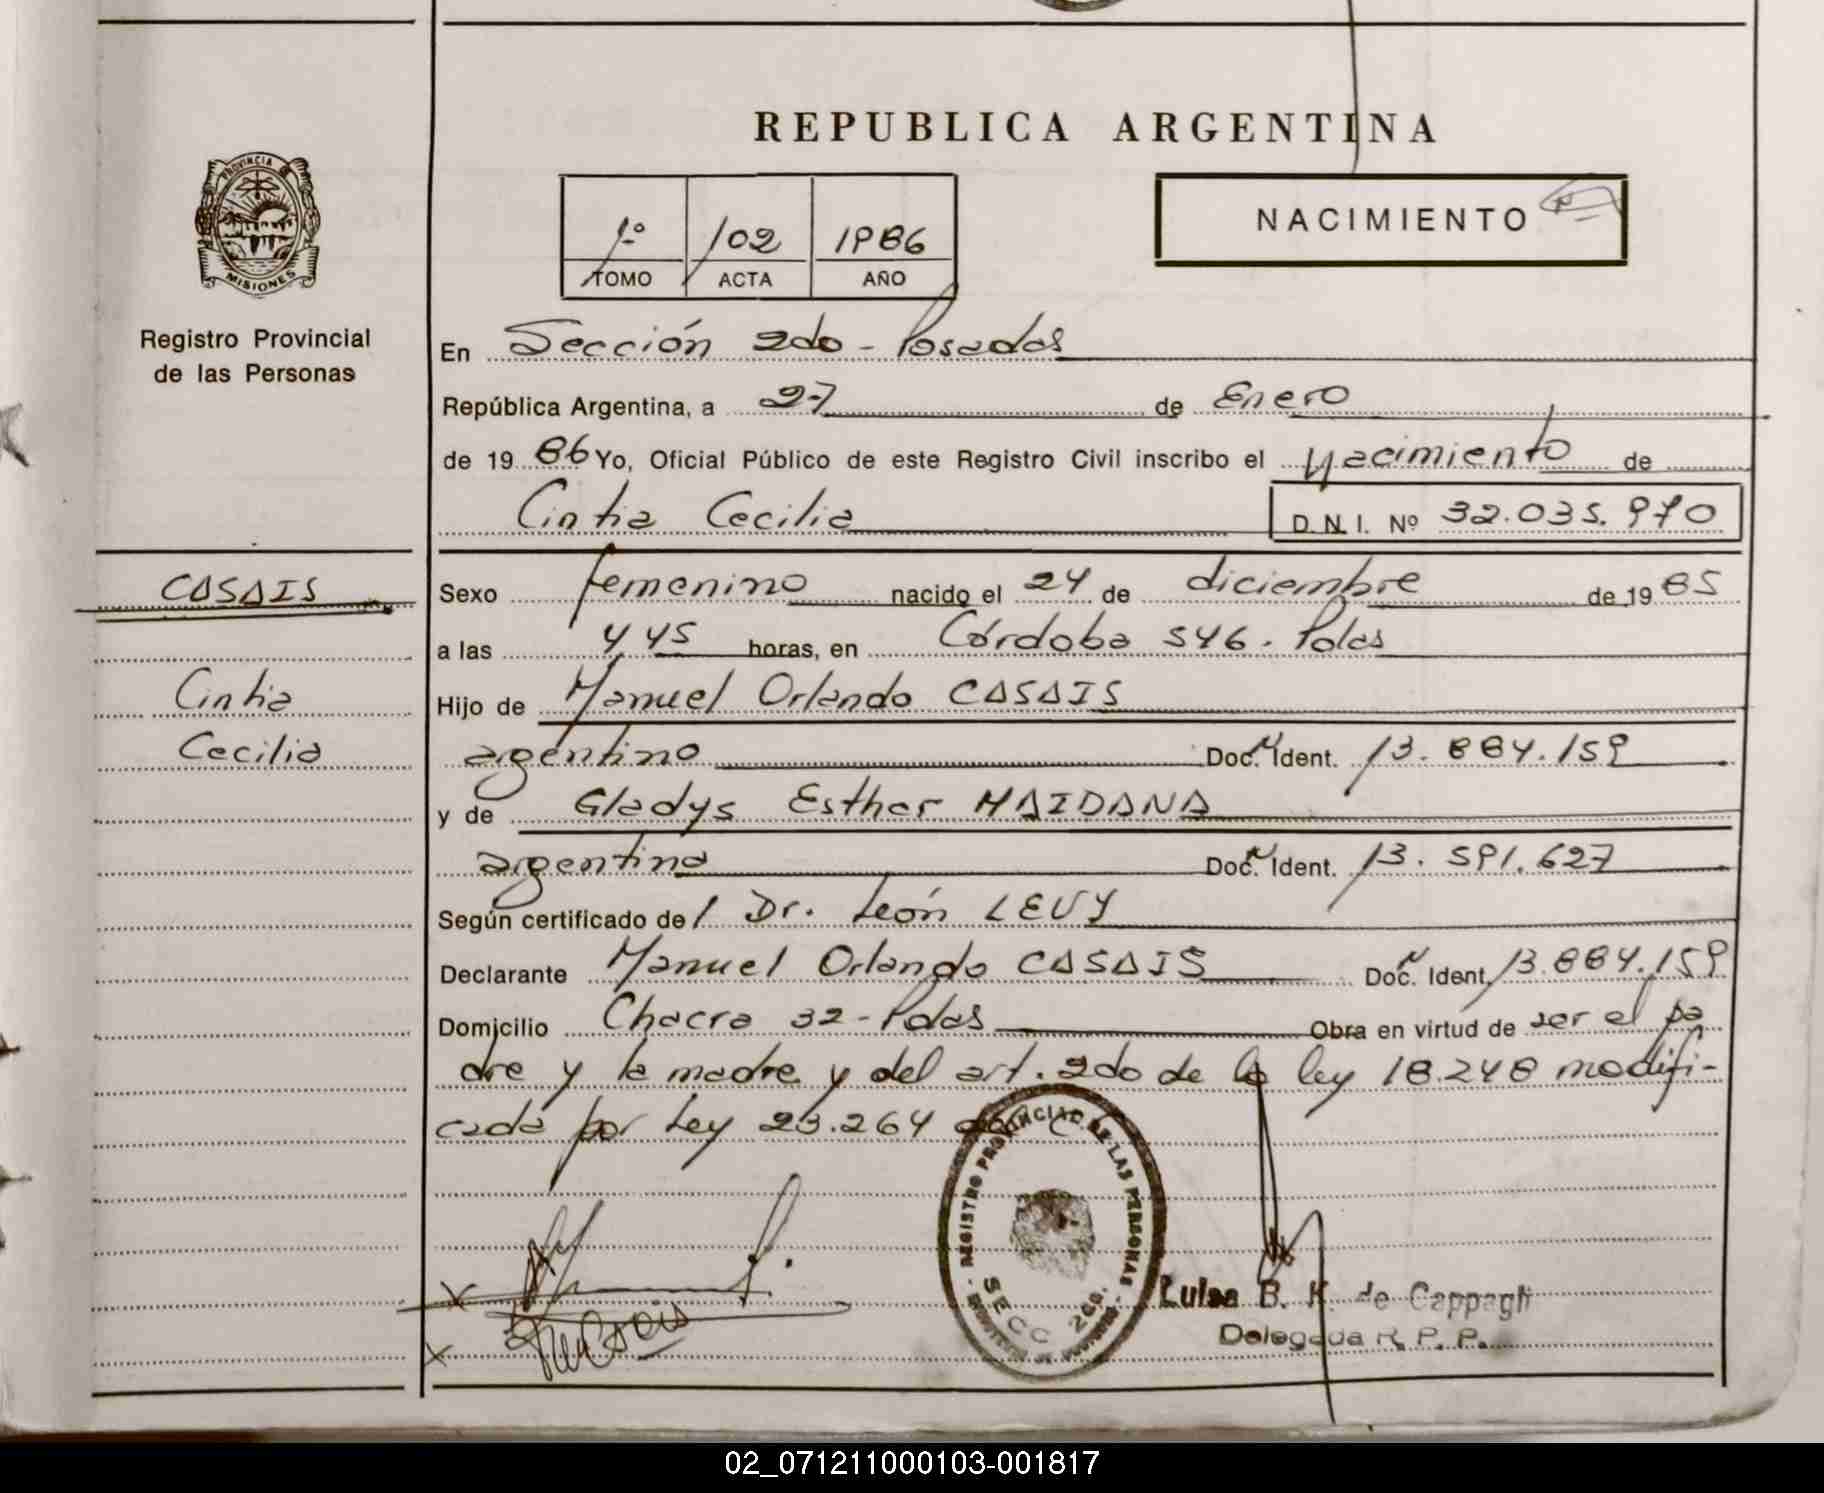 REPUBLICA ARGENTINA
PROVINCIA DE
MISIONES
1º 102 1986
TOMO ACTA AÑO
NACIMIENTO
Registro Provincial
de las Personas
En Sección 2do - Posadas
República Argentina, a 27 de Enero
de 1986 Yo, Oficial Público de este Registro Civil inscribo el Nacimiento de
Cintia Cecilia D.N.I. Nº 32.035.970
CASAIS
Cintia
Cecilia
Sexo femenino nacido el 24 de diciembre de 1985
a las 4 45 horas, en Córdoba 546 - Pdas
Hijo de Manuel Orlando CASAIS
argentino Doc. Ident. 13.884.159
y de Gladys Esther MAIDANA
argentina Doc. Ident. 13.591.627
Según certificado del Dr. León LEVY
Declarante Manuel Orlando CASAIS Doc. Ident. 13.884.159
Domicilio Chacra 32 - Pdas Obra en virtud de ser el pa
dre y la madre y del art. 2do de la ley 18.248 modifi-
cada por Ley 23.264
REGISTRO PROVINCIAL DE LAS PERSONAS
SECC 2da.
Luisa B. K. de Cappagli
Delegada R. P. P.
02_071211000103-001817